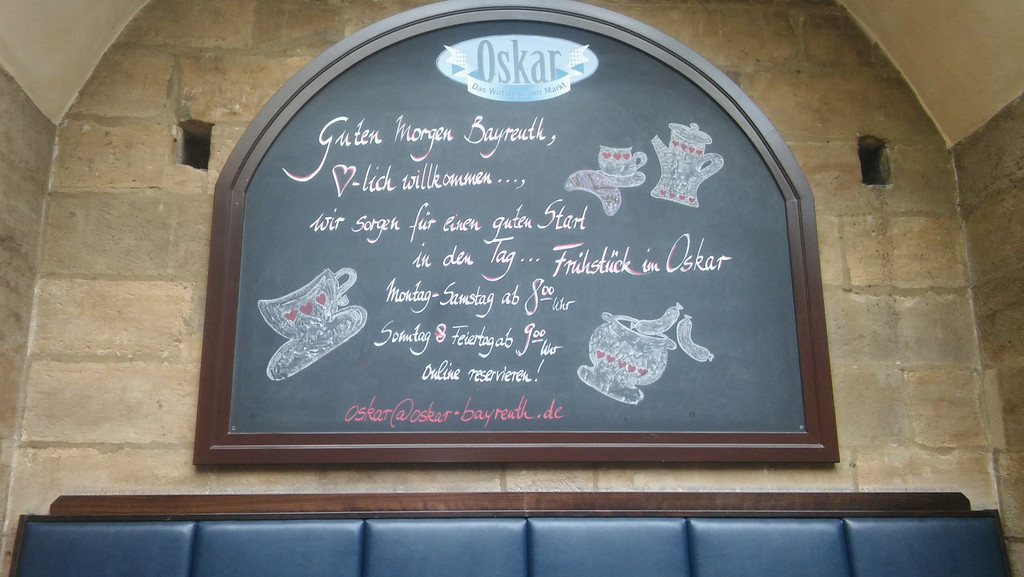 Oskar
Das Wirtshaus am Markt
Guten Morgen Bayreuth,
♡-lich willkommen...,
wir sorgen für einen guten Start
in den Tag... Frühstück im Oskar
Montag-Samstag ab 8⁰⁰ Uhr
Sonntag & Feiertag ab 9⁰⁰ Uhr
online reservieren!
oskar@oskar-bayreuth.de